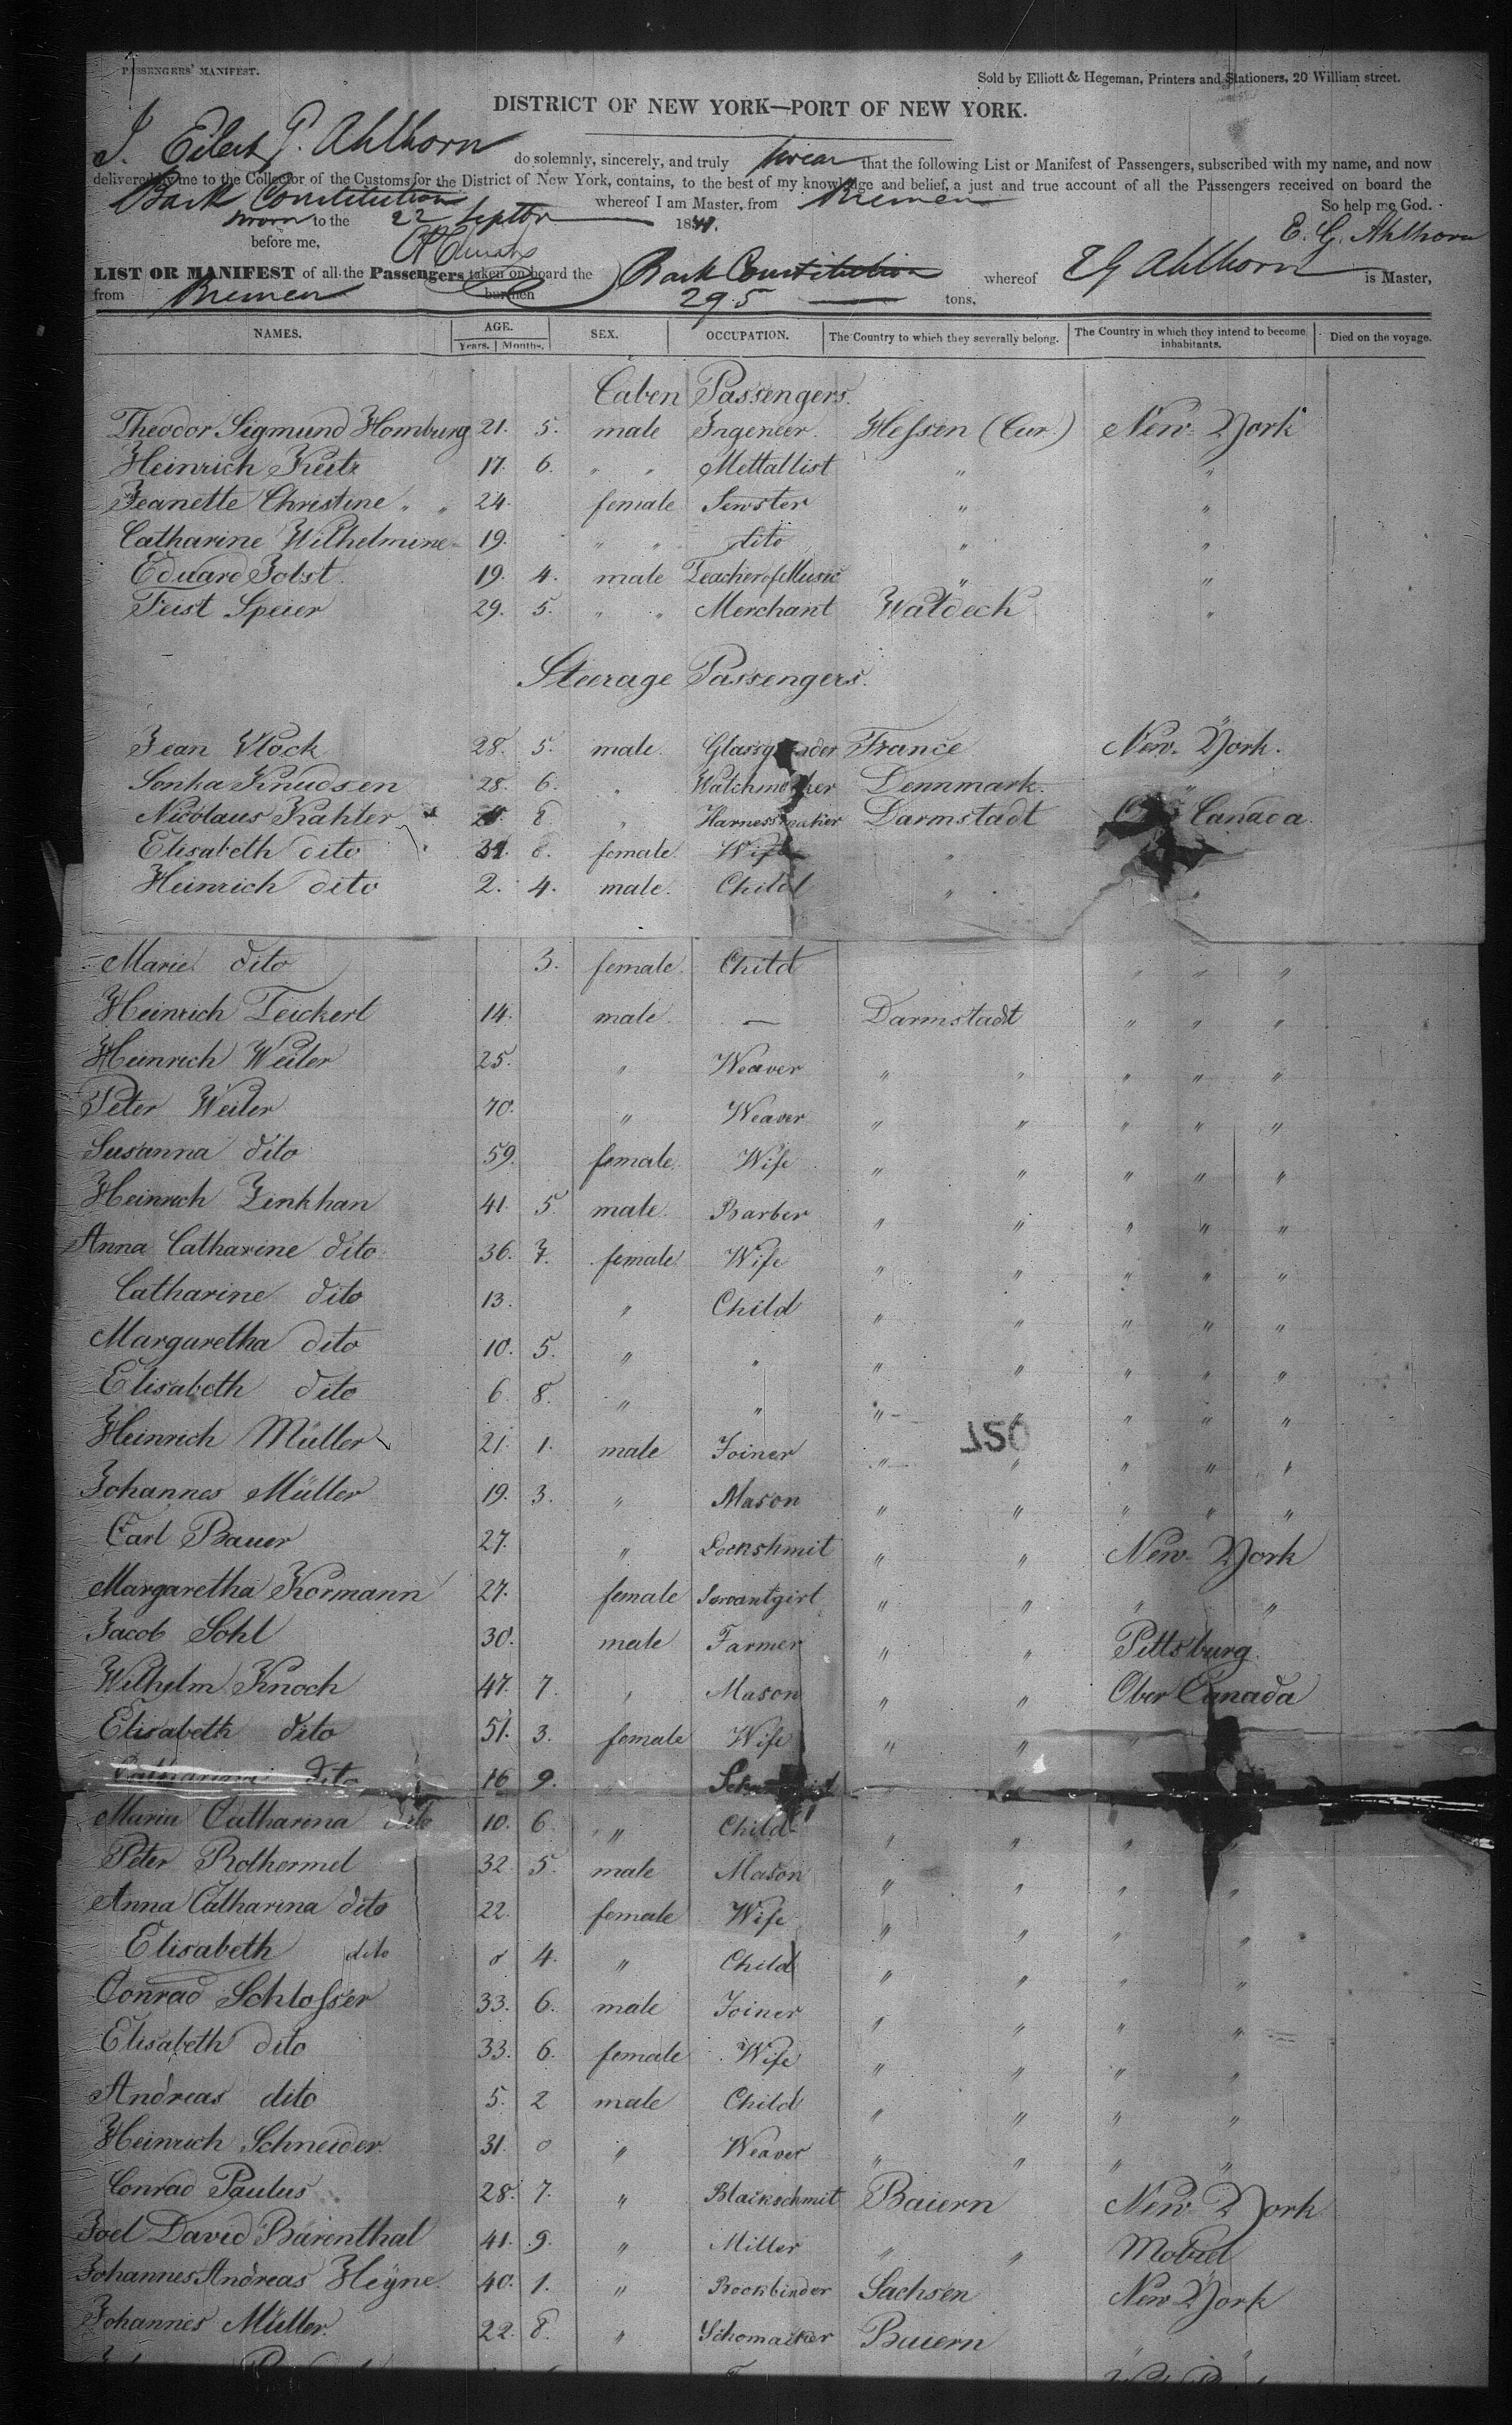 PASSENGERS' MANIFEST.
Sold by Elliott & Hegeman, Printers and Stationers, 20 William street.
DISTRICT OF NEW YORK—PORT OF NEW YORK.
I. Eilert G. Ahlhorn do solemnly, sincerely, and truly swear that the following List or Manifest of Passengers, subscribed with my name, and now
delivered by me to the Collector of the Customs for the District of New York, contains, to the best of my knowledge and belief, a just and true account of all the Passengers received on board the
Bark Constitution whereof I am Master, from Bremen So help me God.
Sworn to the 22 Septbr 1841.
before me, E. G. Ahlhorn
LIST OR MANIFEST of all the Passengers taken on board the Bark Constitution whereof E G Ahlhorn is Master,
from Bremen burthen 295 tons,
NAMES. AGE. Years. Months. SEX. OCCUPATION. The Country to which they severally belong. The Country in which they intend to become inhabitants. Died on the voyage.
Caben Passengers.
Theodor Sigmund Homburg 21. 5. male Ingeneer. Hessen (Cur.) New-York
Heinrich 17. 6. " " Mettallist " "
Jeanette Christine " " 24. female Sewster " "
Catharine Wilhelmine 19. " " dito " "
Eduard Jobst 19. 4. male Teacher of Music " "
Feist Speier 29. 5. " " Merchant Waldeck "
Steerage Passengers.
Jean Vlock 28. 5. male. France New-York.
Sonka Knudsen 28. 6. " Watchmaker Dennmark. "
Nicolaus Kahler 8. " Harnessmaker Darmstadt Canada.
Elisabeth dito 8. female. Wife "
Heinrich dito 2. 4. male. Child " "
Marie dito 3. female. Child " " "
Heinrich Teickert 14. male. — Darmstadt " " "
Heinrich Weiler 25. " Weaver " " " " "
Peter Weiler 70. " Weaver " " " " "
Susanna dito 59. female. Wife " " " " "
Heinrich Zinkhan 41. 5. male. Barber " " " " "
Anna Catharine dito 36. 7. female. Wife " " " " "
Catharine dito 13. " Child " " " " "
Margaretha dito 10. 5. " " " " " " "
Elisabeth dito 6. 8. " " " " " " "
Heinrich Müller 21. 1. male Joiner " " " " "
Johannes Müller 19. 3. " Mason " " " " "
Carl Bauer 27. " Lockshmit " " New-York
Margaretha Kormann 27. female Servantgirl " " " "
Jacob Sohl 30. male Farmer " " Pittsburg.
Wilhelm Knoch 47. 7. " Mason " " Ober Canada
Elisabeth dito 51. 3. female Wife " " "
Catharina dito 16 9. "
Maria Catharina dito 10. 6. " Child " " " "
Peter Rothermel 32. 5. male Mason " " " "
Anna Catharina dito 22. female Wife " " " "
Elisabeth dito 4. " Child " " " "
Conrad Schlosser 33. 6. male Joiner " " " "
Elisabeth dito 33. 6. female Wife " " " "
Andreas dito 5. 2 male Child " " " "
Heinrich Schneider. 31. 0 " Weaver " " " "
Conrad Paulus 28. 7. " Blackschmit Baiern New-York
Joel David Bärenthal 41. 9. " Miller " " Mobiel
Johannes Andreas Heyne. 40. 1. " Bookbinder Sachsen New York
Johannes Müller. 22. 8. " Schomacker Baiern " "